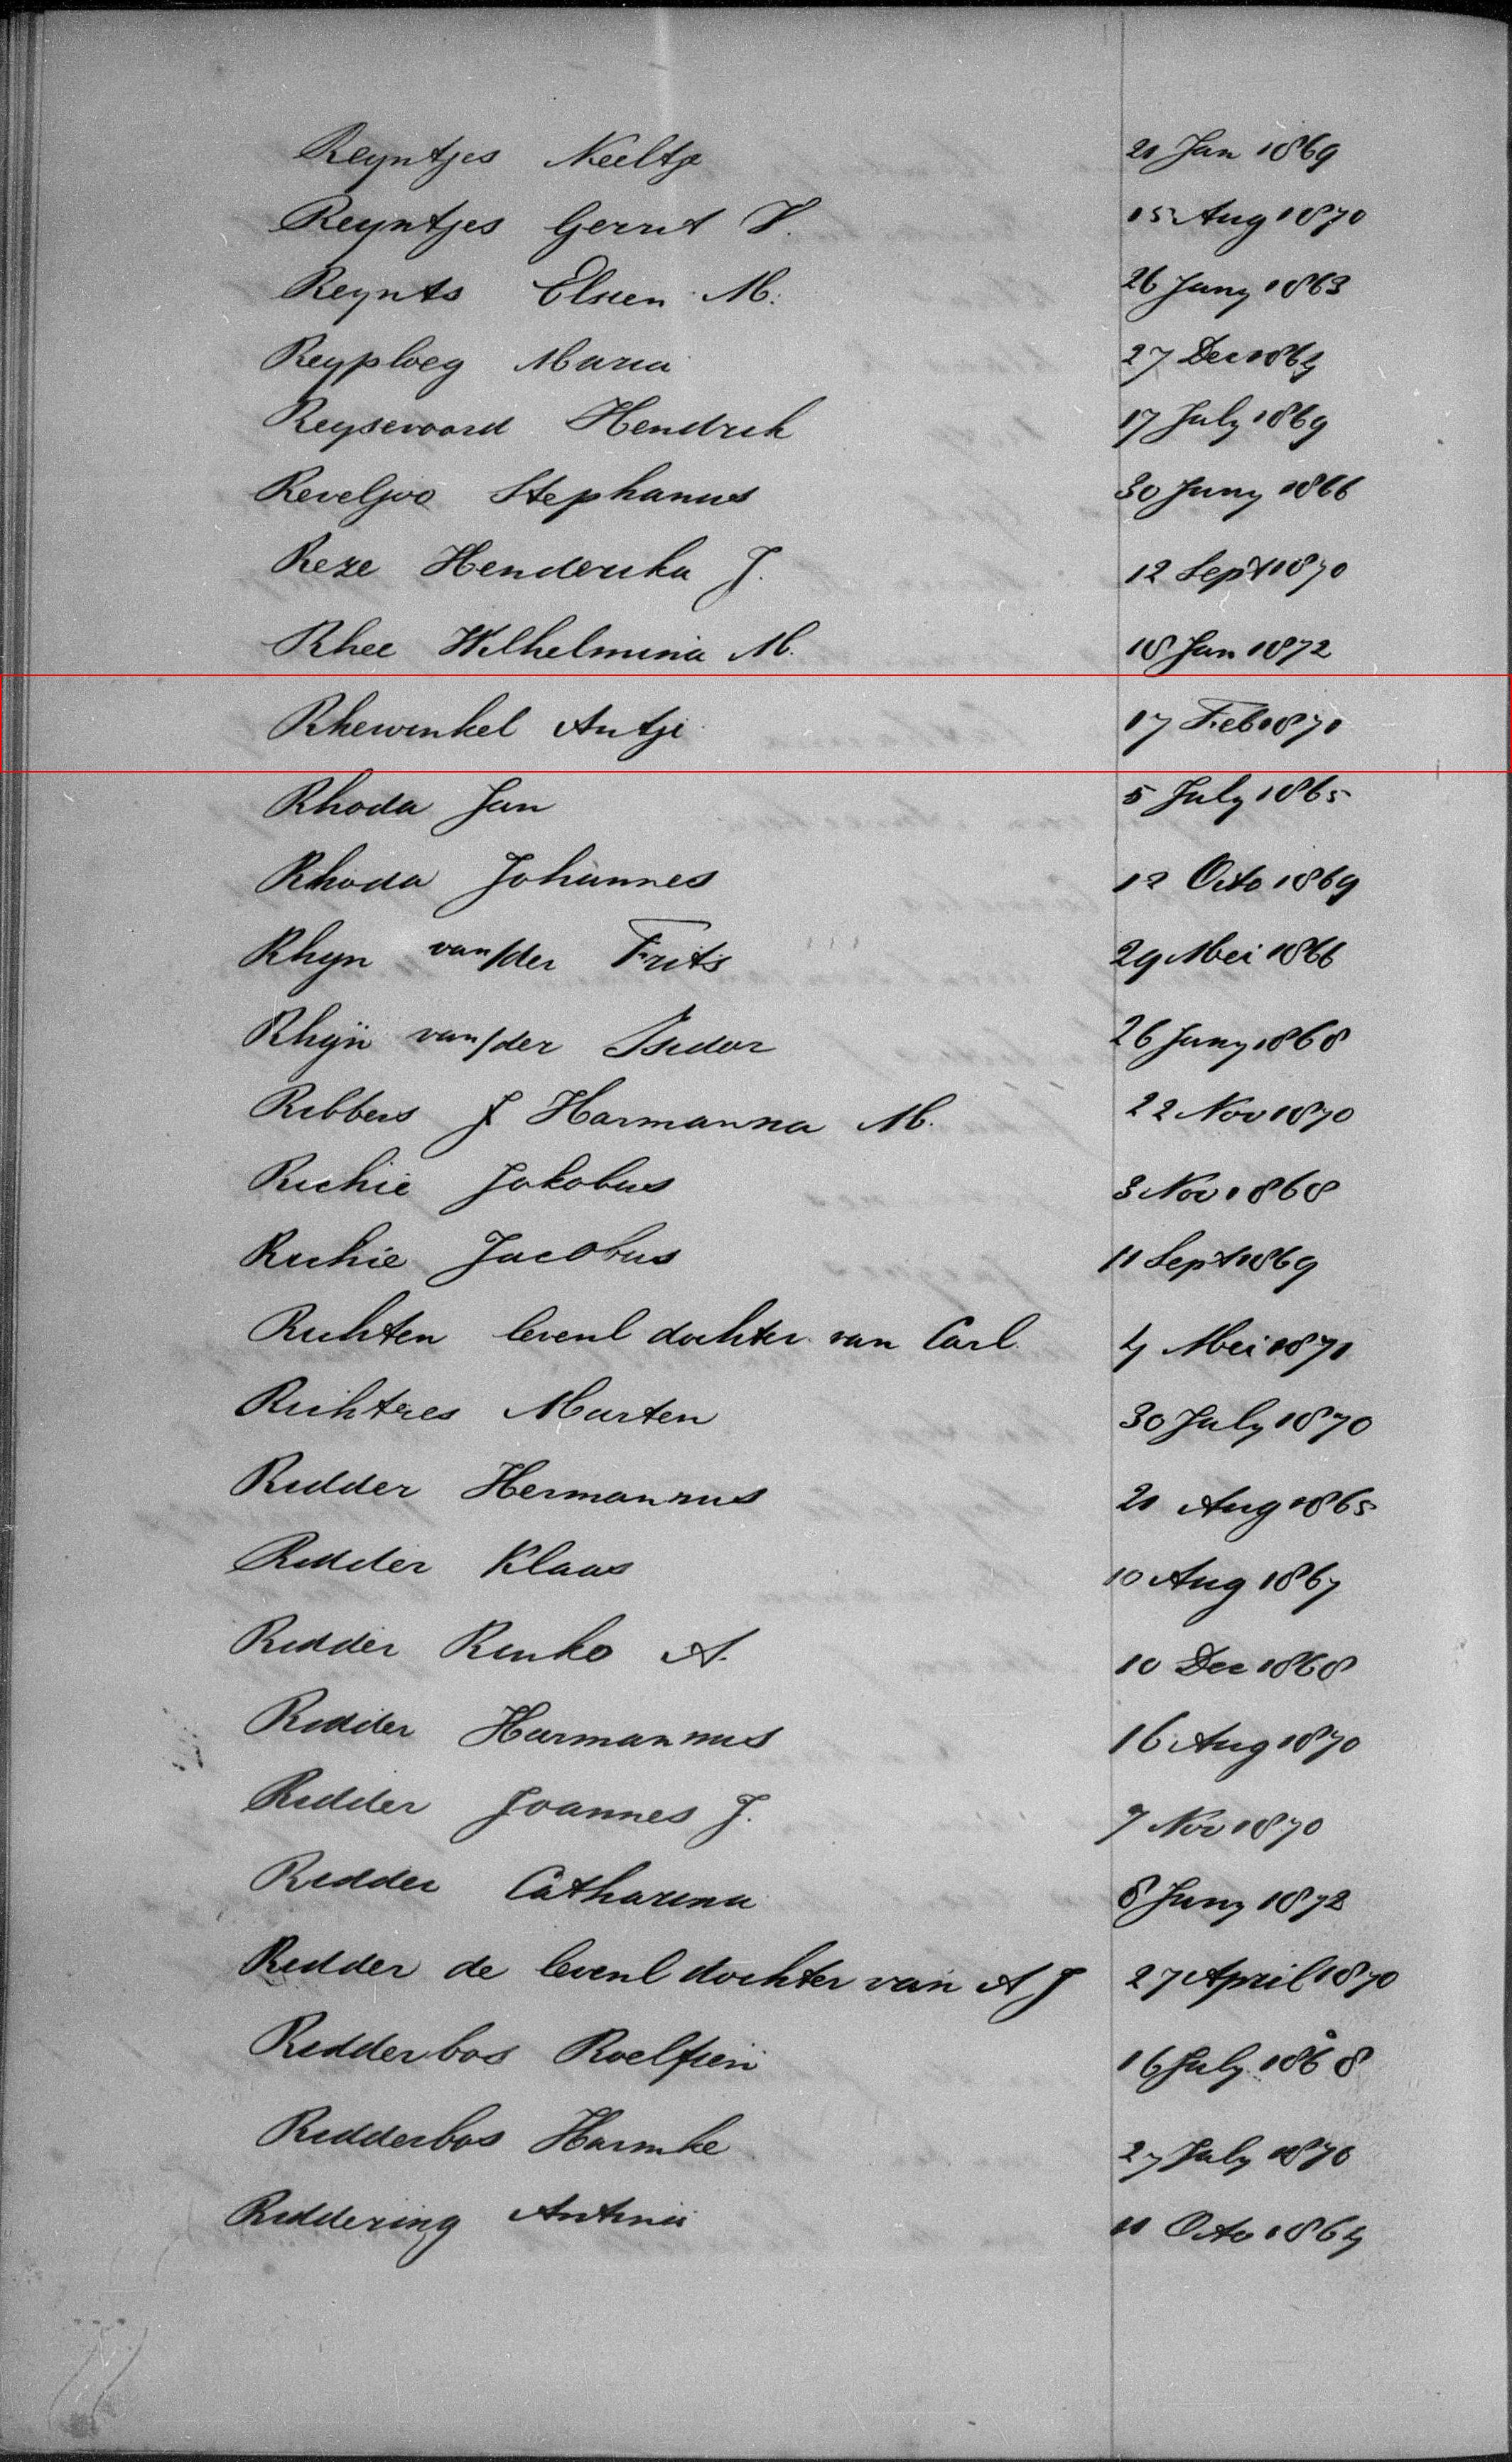 Reyntjes Neeltje 21 Jan 1869
Reyntjes Gerrit H. 15 Aug 1870
Reynts Elsien M. 26 Juny 1863
Reyploeg Maria 27 Dec 1864
Reysevoord Hendrik 17 July 1869
Reveljoo Stephanus 30 Juny 1866
Reze Henderika J. 12 Sept 1870
Rhee Wilhelmina M. 18 Jan 1872
Rhewinkel Antje 17 Feb 1871
Rhoda Jan 5 July 1865
Rhoda Johannes 12 Octo 1869
Rhyn van/der Frits 29 Mei 1866
Rhÿn van/der Isidor 26 Juny 1868
Ribbers J Harmanna M. 22 Nov 1870
Richie Jakobus 3 Nov 1868
Richie Jacobus 11 Sept 1869
Richten levenl dochter van Carl 4 Mei 1871
Richtres Marten 30 July 1870
Ridder Hermannus 21 Aug 1865
Ridder Klaas 10 Aug 1867
Ridder Rinko A. 10 Dec 1868
Ridder Harmannus 16 Aug 1870
Ridder Joannes J. 7 Nov 1870
Ridder Catharina 8 Juny 1872
Ridder de levenl dochter van A J 27 April 1870
Ridderbos Roelfien 16 July 1868
Ridderbos Harmke 27 July 1870
Riddering Antina 11 Octo 1864